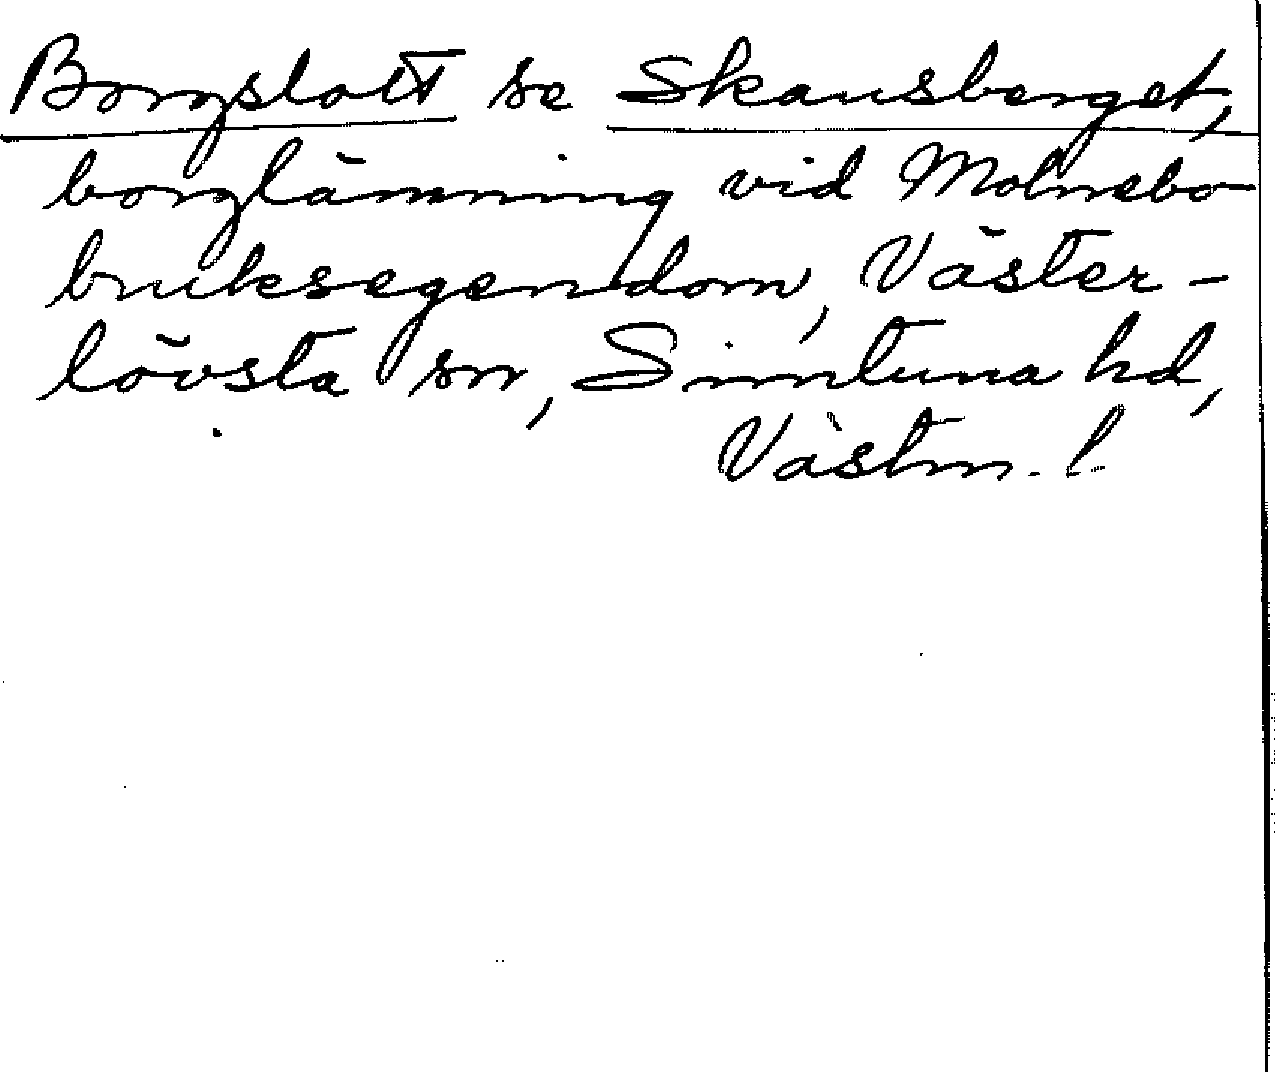 Borgslott se Skansberget,
borglämning vid Molnebo
bruksegendom, Väster-
lövsta sn, Simtuna hd,
Västm. l.